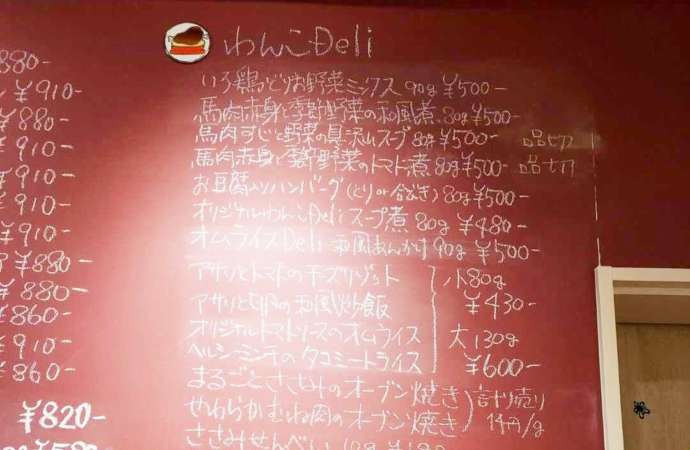 880-
¥910-
¥880-
¥910-
¥910-
¥910-
¥910-
¥880-
¥880-
¥860-
¥910-
¥860-
¥820-
わんこDeli
いろ鶏どりお野菜ミックス 90g ¥500-
馬肉赤身と季節野菜の和風煮 80g ¥500-
馬肉すじと野菜の具沢山スープ 80g ¥500- 品切
馬肉赤身と季節野菜のトマト煮 80g ¥500- 品切
お豆腐入りハンバーグ(とりor合びき) 80g ¥500-
オリジナルわんこDeliスープ煮 80g ¥480-
オムライスDeli 和風あんかけ 90g ¥500-
アサリとトマトのチーズリゾット 小80g
アサリと の和風炒飯 ¥430-
オリジナルトマトソースのオムライス 大130g
ヘルシーミンチのタコミートライス ¥600-
まるごとささみのオーブン焼き 計り売り
やわらかむね肉のオーブン焼き 14円/g
ささみせんべい 10g